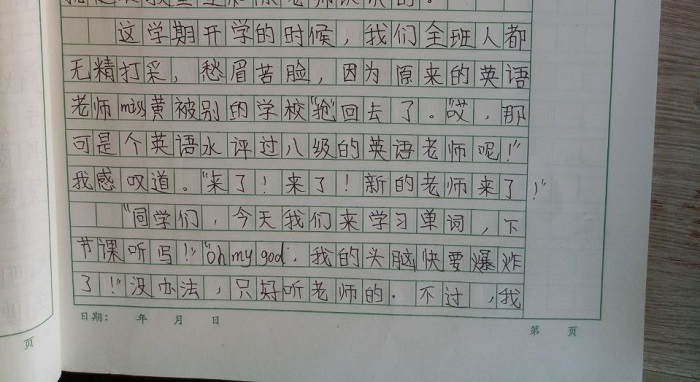 的。
这学期开学的时候，我们全班人都
无精打采，愁眉苦脸，因为原来的英语
老师miss黄被别的学校“抢”回去了。“哎，那
可是个英语水评过八级的英语老师呢！”
我感叹道。“来了！来了！新的老师来了！”
“同学们，今天我们来学习单词，下
节课听吗！”“oh my god．我的头脑快要爆炸
了！”没办法，只好听老师的．不过，我
日期： 年 月 日
第 页
页